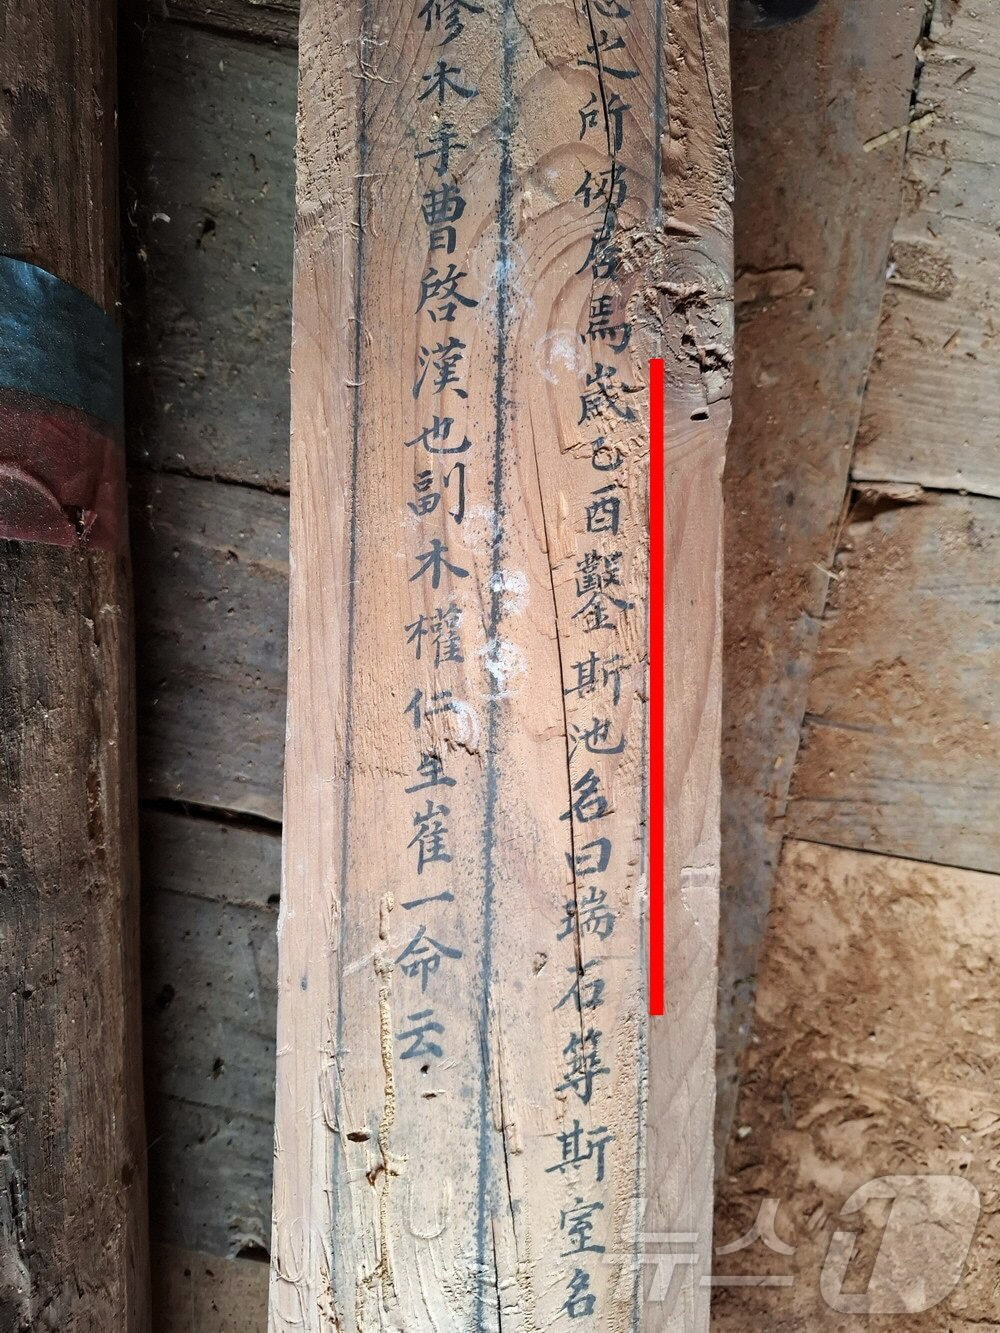 之所備居焉歲己酉鑿斯池名曰瑞石築斯室名
修木手曹啓漢也副木權仁生崔一命云
뉴스1